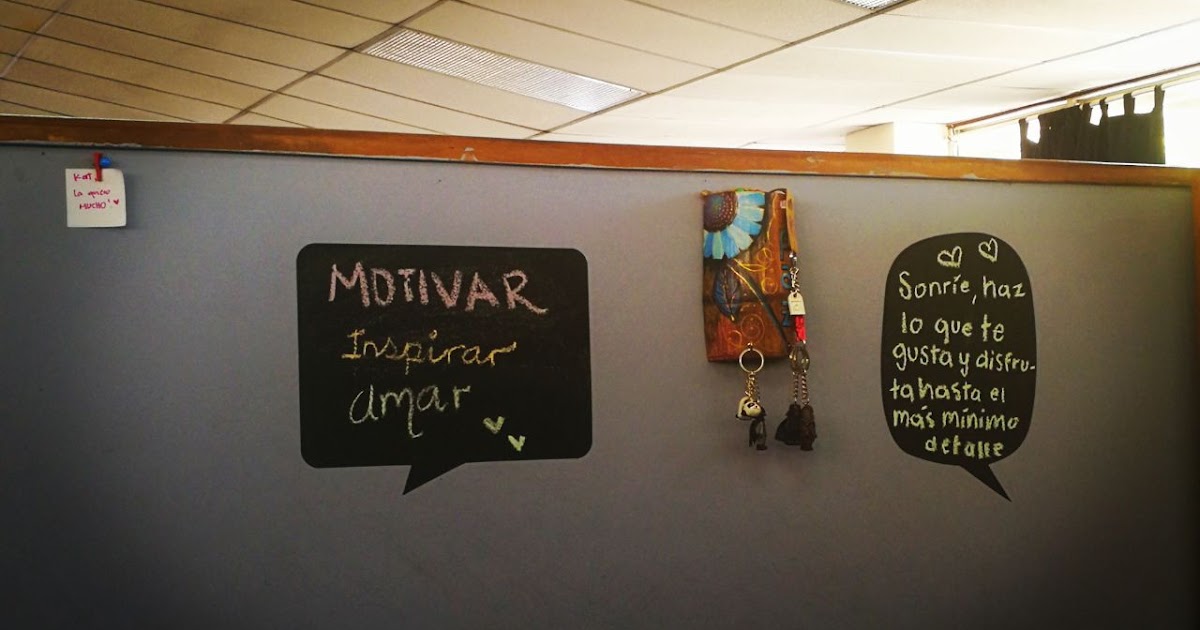 Kat.
la quiero
MUCHO!
MOTIVAR
Inspirar
amar
Sonríe, haz
lo que te
gusta y disfru-
ta hasta el
más mínimo
detalle